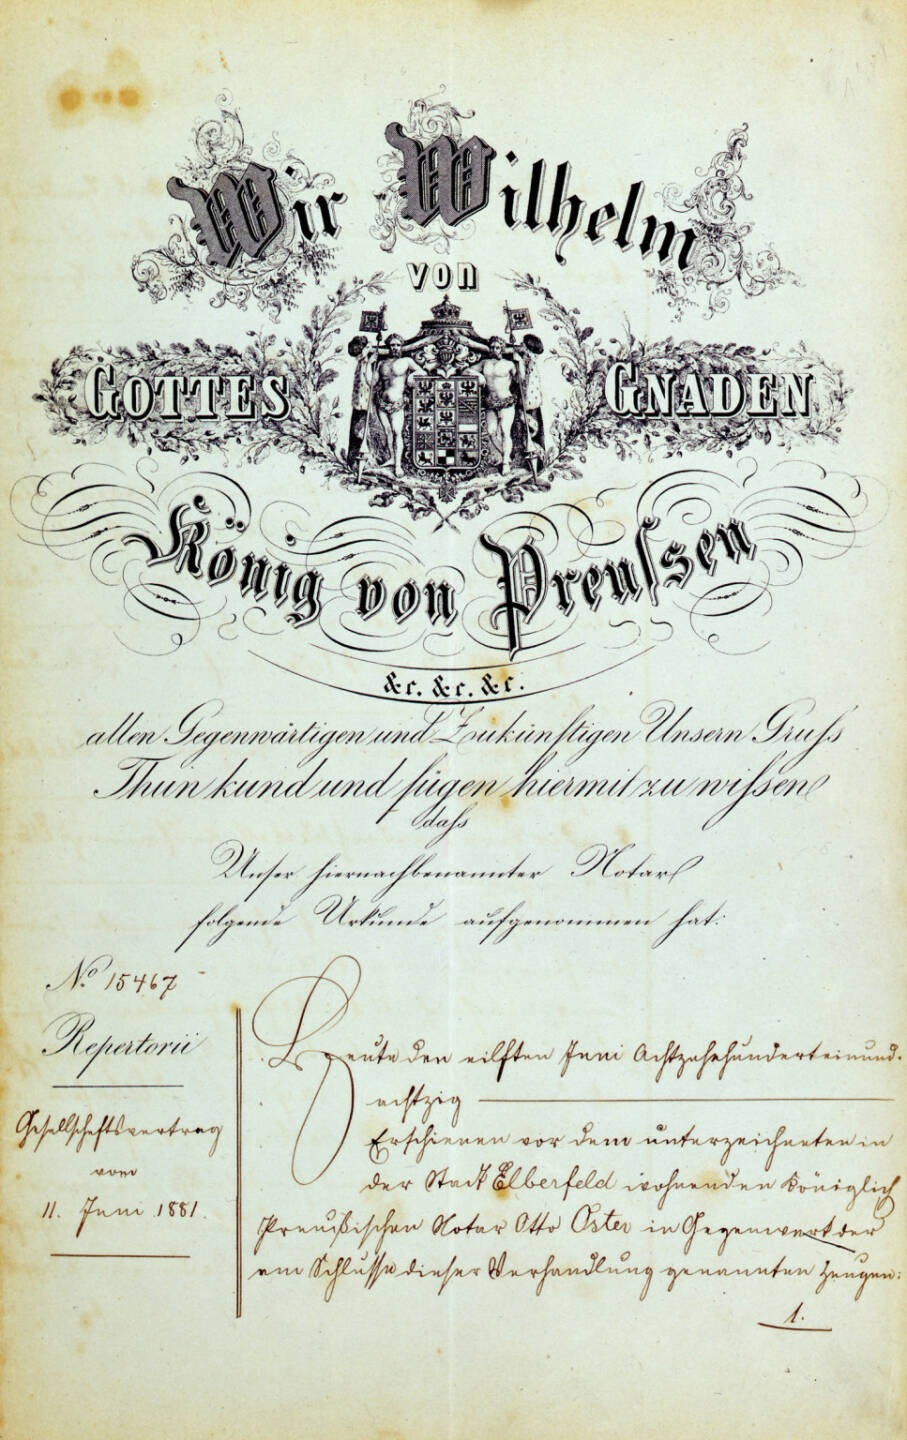 Wir Wilhelm
von
GOTTES GNADEN
König von Preuſsen
&c. &c. &c.
allen Gegenwärtigen und Zukünftigen Unsern Gruſs
Thun kund und fügen hiermit zu wiſsen
daſs
Unser hiernachbenannter Notar
folgende Urkunde aufgenommen hat:
No 15467
Repertorii
Gesellschaftsvertrag
vom
11. Juni 1881.
Heute den eilften Juni Achtzehnhunderteinund-
achtzig
Erschienen vor dem unterzeichneten in
der Stadt Elberfeld wohnenden Königlich
Preußischen Notar Otto Oster in Gegenwart der
am Schlusse dieser Verhandlung genannten Zeugen:
1.